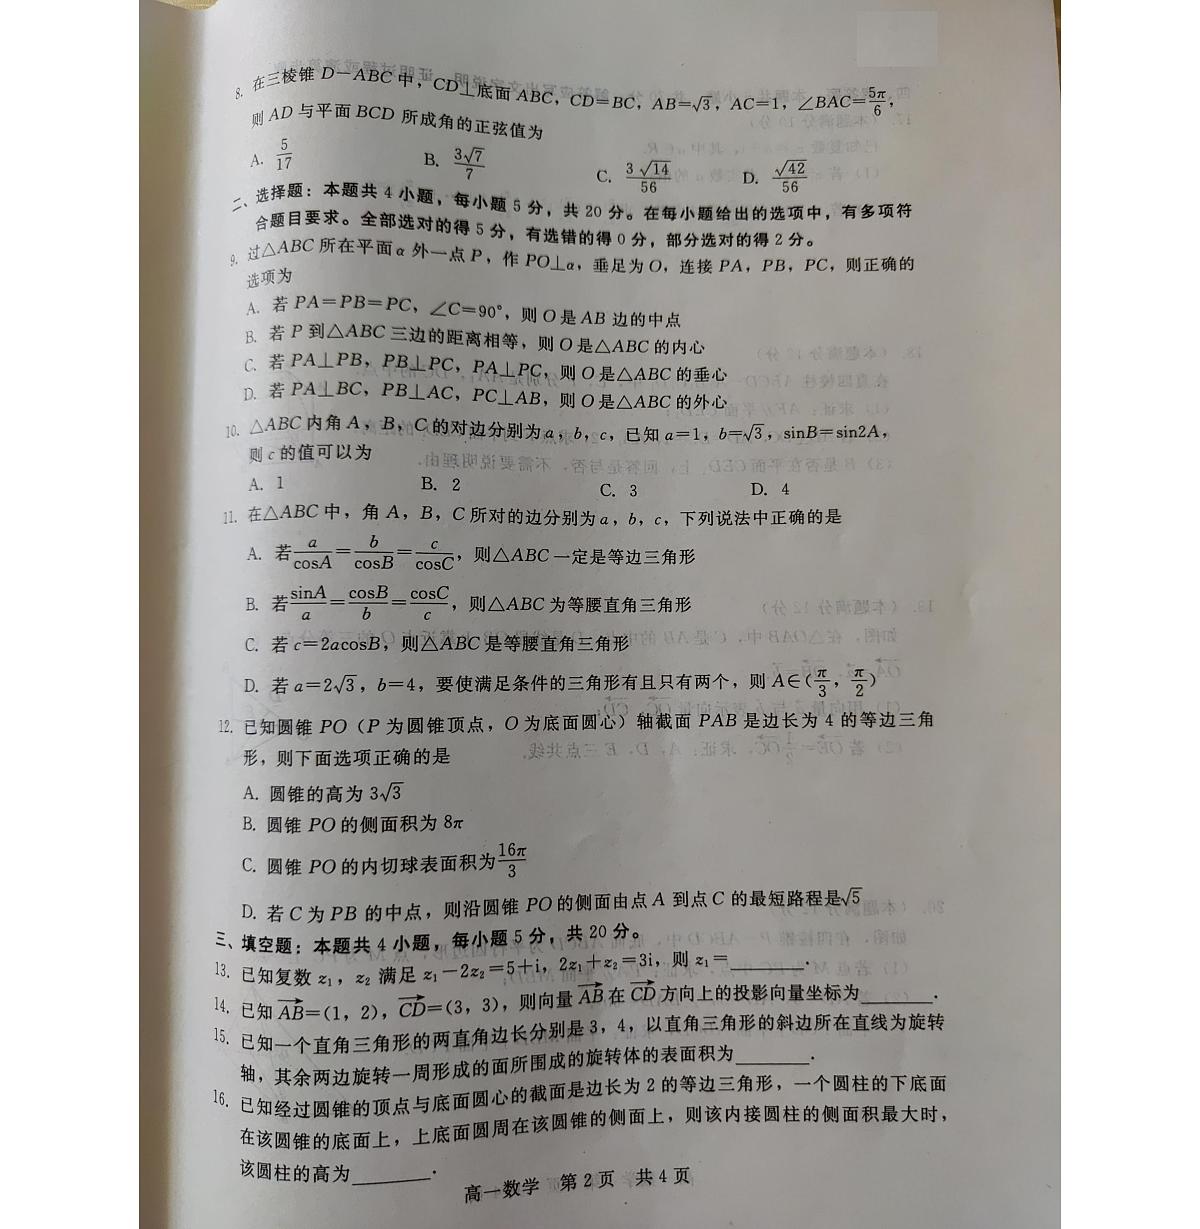 8. 在三棱锥 D－ABC 中，CD⊥底面 ABC，CD=BC，AB=√3，AC=1，∠BAC=5π/6，
则 AD 与平面 BCD 所成角的正弦值为
A. 5/17 B. 3√7/7 C. 3√14/56 D. √42/56
二、选择题：本题共 4 小题，每小题 5 分，共 20 分。在每小题给出的选项中，有多项符
合题目要求。全部选对的得 5 分，有选错的得 0 分，部分选对的得 2 分。
9. 过△ABC 所在平面 α 外一点 P，作 PO⊥α，垂足为 O，连接 PA，PB，PC，则正确的
选项为
A. 若 PA=PB=PC，∠C=90°，则 O 是 AB 边的中点
B. 若 P 到△ABC 三边的距离相等，则 O 是△ABC 的内心
C. 若 PA⊥PB，PB⊥PC，PA⊥PC，则 O 是△ABC 的垂心
D. 若 PA⊥BC，PB⊥AC，PC⊥AB，则 O 是△ABC 的外心
10. △ABC 内角 A，B，C 的对边分别为 a，b，c，已知 a=1，b=√3，sinB=sin2A，
则 c 的值可以为
A. 1 B. 2 C. 3 D. 4
11. 在△ABC 中，角 A，B，C 所对的边分别为 a，b，c，下列说法中正确的是
A. 若 a/cosA=b/cosB=c/cosC，则△ABC 一定是等边三角形
B. 若 sinA/a=cosB/b=cosC/c，则△ABC 为等腰直角三角形
C. 若 c=2acosB，则△ABC 是等腰直角三角形
D. 若 a=2√3，b=4，要使满足条件的三角形有且只有两个，则 A∈(π/3，π/2)
12. 已知圆锥 PO（P 为圆锥顶点，O 为底面圆心）轴截面 PAB 是边长为 4 的等边三角
形，则下面选项正确的是
A. 圆锥的高为 3√3
B. 圆锥 PO 的侧面积为 8π
C. 圆锥 PO 的内切球表面积为 16π/3
D. 若 C 为 PB 的中点，则沿圆锥 PO 的侧面由点 A 到点 C 的最短路程是√5
三、填空题：本题共 4 小题，每小题 5 分，共 20 分。
13. 已知复数 z₁，z₂ 满足 z₁－2z₂=5+i，2z₁+z₂=3i，则 z₁=________.
14. 已知 AB→=(1，2)，CD→=(3，3)，则向量 AB→ 在 CD→ 方向上的投影向量坐标为________.
15. 已知一个直角三角形的两直角边长分别是 3，4，以直角三角形的斜边所在直线为旋转
轴，其余两边旋转一周形成的面所围成的旋转体的表面积为________.
16. 已知经过圆锥的顶点与底面圆心的截面是边长为 2 的等边三角形，一个圆柱的下底面
在该圆锥的底面上，上底面圆周在该圆锥的侧面上，则该内接圆柱的侧面积最大时，
该圆柱的高为________.
高一数学 第 2 页 共 4 页